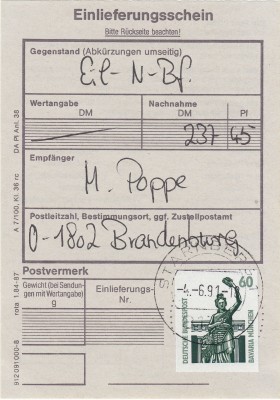 Einlieferungsschein
Bitte Rückseite beachten!
Gegenstand (Abkürzungen umseitig)
Eil-N-Bf.
Wertangabe
DM
Nachnahme
DM
Pf
237 45
Empfänger
M. Poppe
Postleitzahl, Bestimmungsort, ggf. Zustellpostamt
O-1802 Brandenburg
Postvermerk
Gewicht (bei Sendun-
gen mit Wertangabe)
g
Einlieferungs-
Nr.
STARNBERG
-4.-6.91-
60
BAVARIA MÜNCHEN
DA Pl Anl. 36
A 7/100, Kl. 36 rc
rota 1.84-87
912 091 000-8